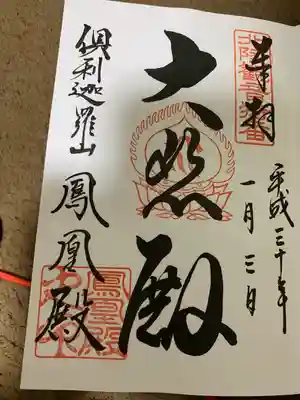 奉拝
平成三十年
一月三日
大悲殿
倶利迦羅山
鳳凰殿
鳳凰殿